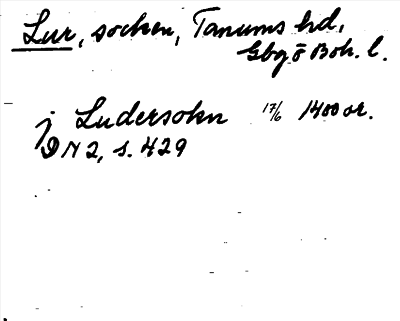 Lur, socken, Tanums hd,
Gbg o Boh. l.
j Ludersokn 17/6 1400 or.
DN 2, s. 429